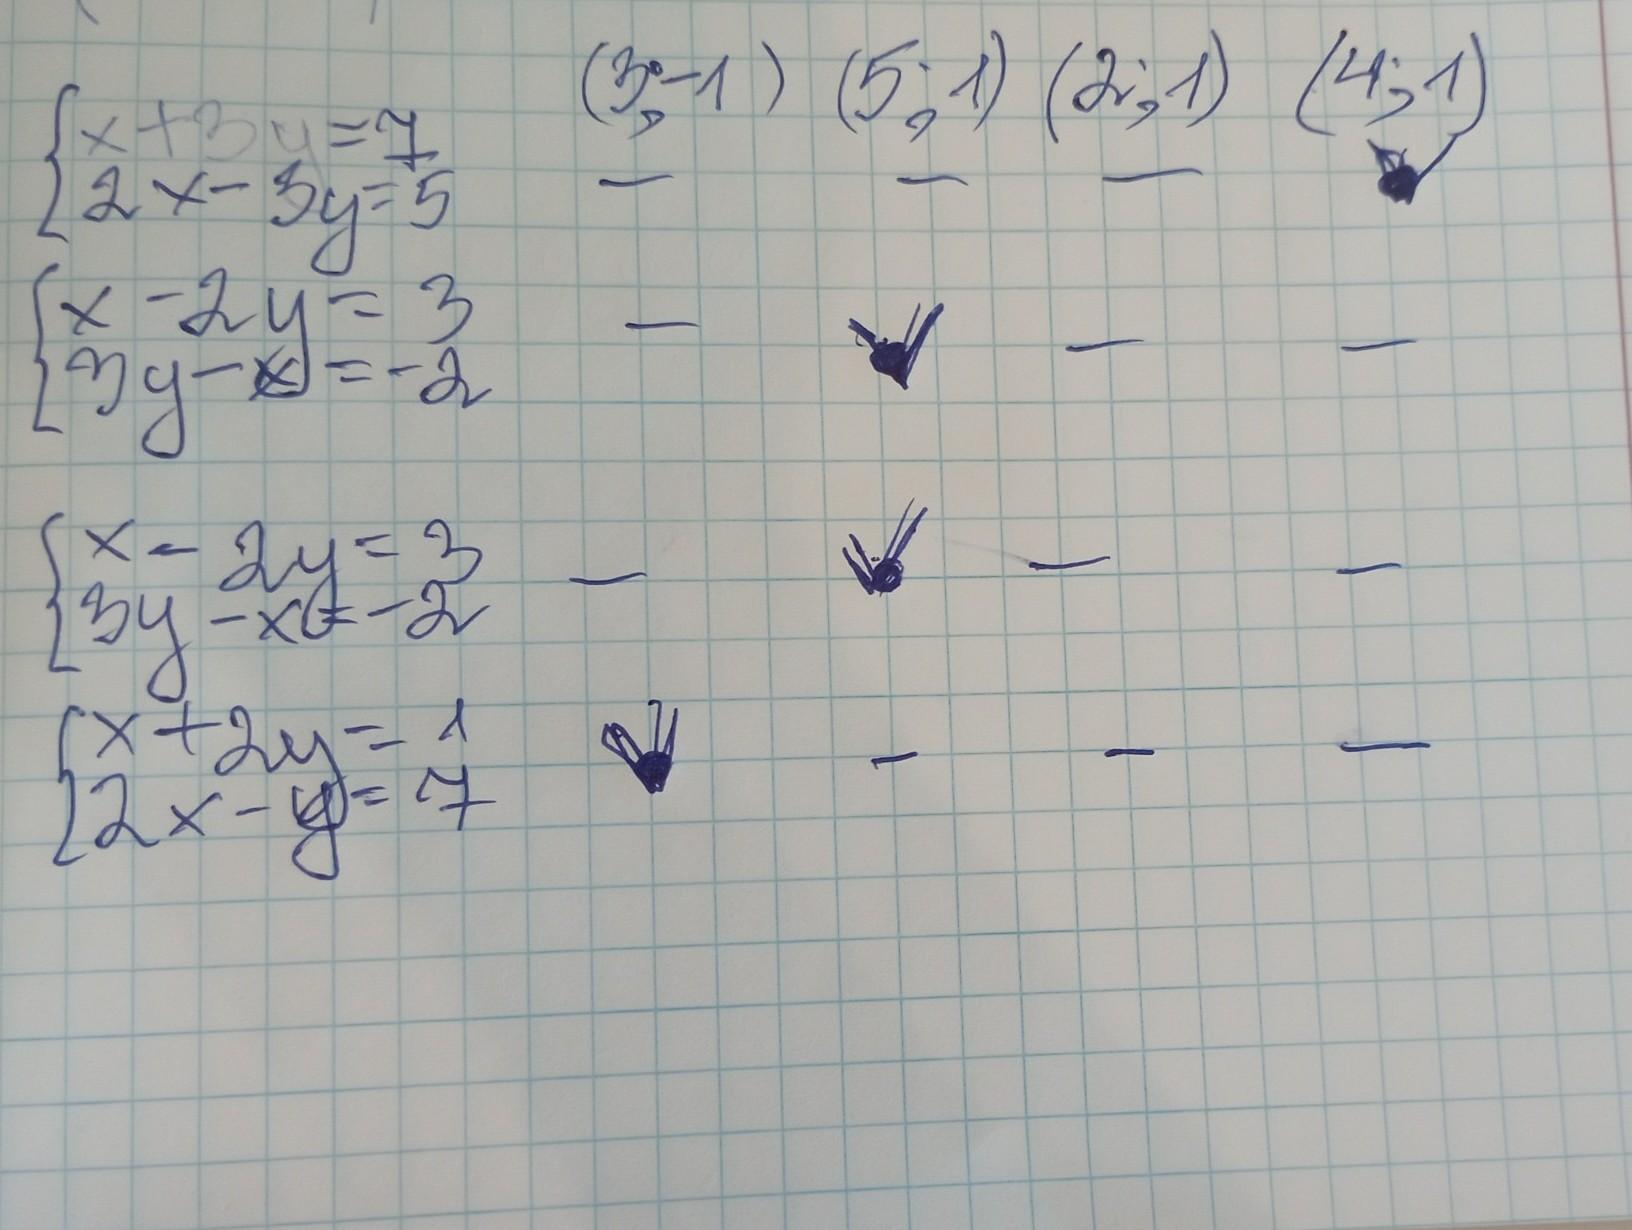 (3;-1) (5;1) (2;1) (4;1)
x+3y=7
2x-3y=5
x-2y=3
3y-x=-2
x-2y=3
3y-x=-2
x+2y=1
2x-y=7